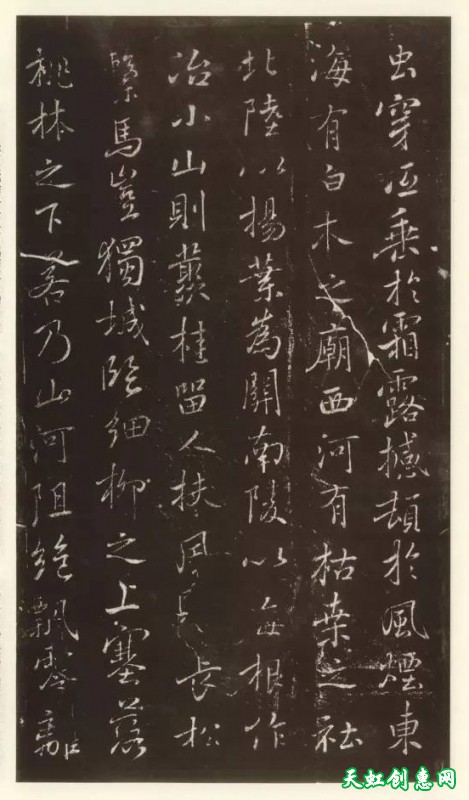 虫穿低垂於霜露撼頓於風煙東
海有白木之廟西河有枯桑之社
北陸以揚葉為關南陵以每根作
冶小山則叢桂留人扶風長松
繫馬豈獨城臨細柳之上塞落
桃林之下若乃山河阻絕飄零離
天虹创惠网